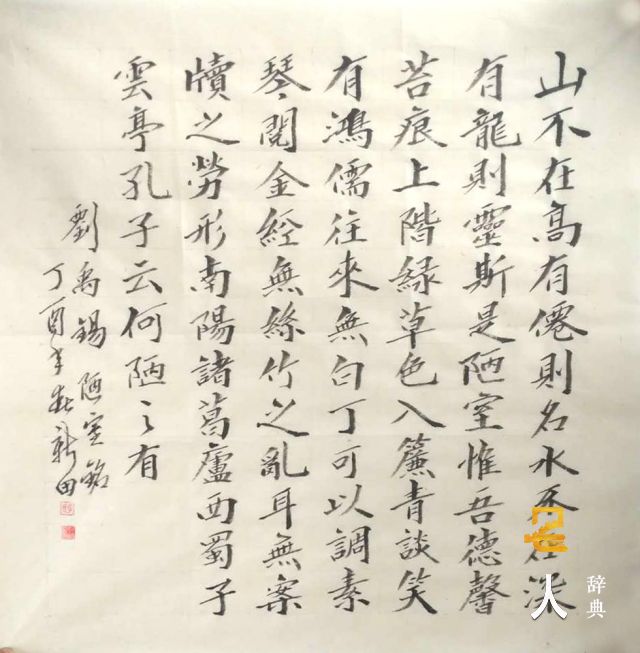 山不在高有僊則名水不在深
有龍則靈斯是陋室惟吾德馨
苔痕上階緑草色入簾青談笑
有鴻儒往來無白丁可以調素
琴閱金經無絲竹之亂耳無案
牘之勞形南陽諸葛廬西蜀子
雲亭孔子云何陋之有
劉禹錫陋室銘
丁酉年春新田
名人辞典